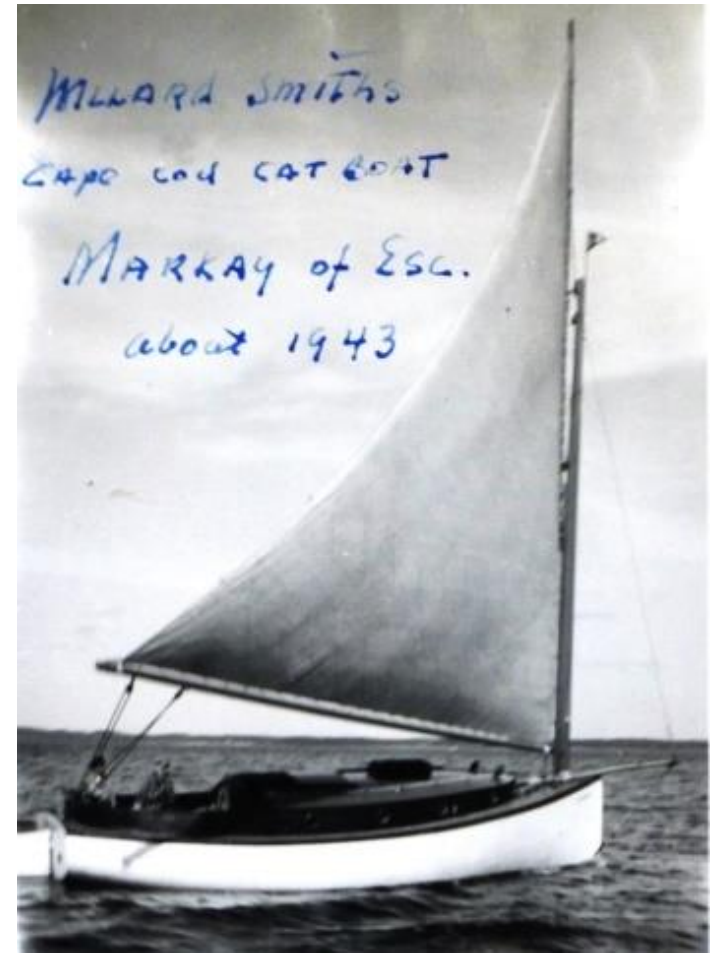 Millard Smiths
Cape Cod CAT BOAT
MARKAY of ESC.
about 1943